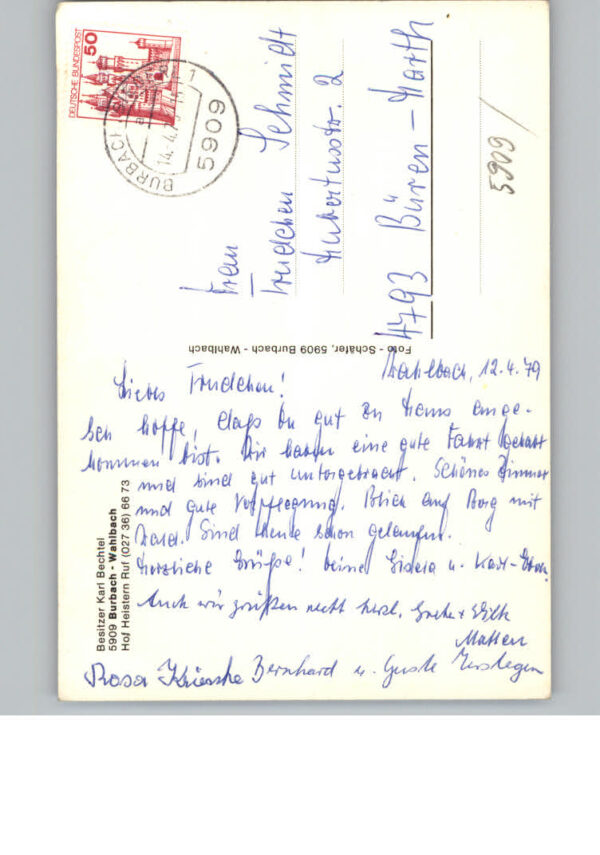 DEUTSCHE BUNDESPOST
50
BURBACH
1
14.4.7
5909
Frau
Trudchen Schmidt
Hubertusstr. 2
4793 Büren - Harth
5909
Foto - Schäfer, 5909 Burbach - Wahlbach
Besitzer Karl Bechtel
5909 Burbach - Wahlbach
Hof Heistern Ruf (027 36) 66 73
Wahlbach, 12.4.79
Liebes Trudchen!
Ich hoffe, daß Du gut zu Haus ange-
kommen bist. Wir haben eine gute Fahrt gehabt
und sind gut untergebracht. Schönes Zimmer
und gute Verpflegung. Blick auf Berg mit
Wald. Sind heute schon gelaufen.
Herzliche Grüße! Deine u. Karl-
Auch wir grüßen recht herzl. Grete +
Rosa Bernhard u. Guste